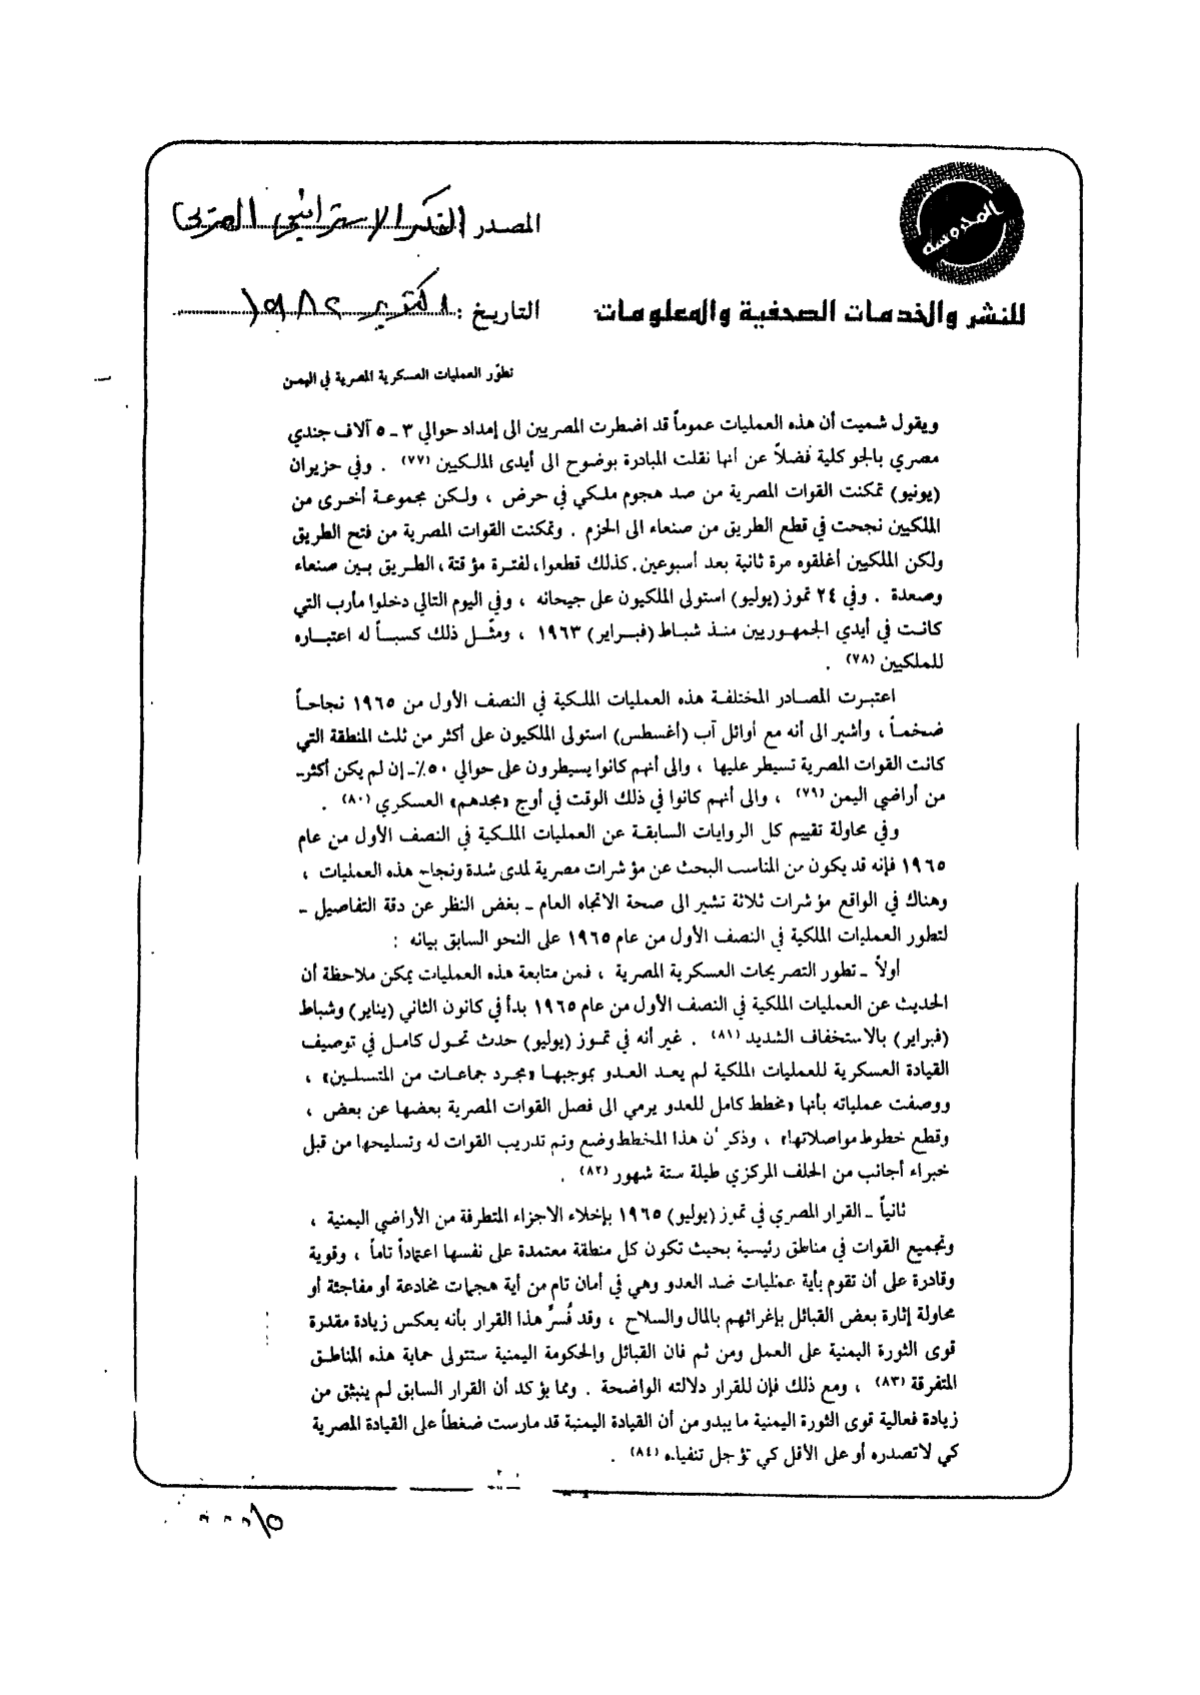 المحروسة
المصدر الفكر الاستراتيجي العربي
للنشر والخدمات الصحفية والمعلومات
التاريخ : اكتوبر ١٩٨٢
تطوّر العمليات العسكرية المصرية في اليمن
ويقول شميت أن هذه العمليات عموماً قد اضطرت المصريين الى إمداد حوالي ٣ ـ ٥ آلاف جندي
مصري بالجو كلية فضلاً عن أنها نقلت المبادرة بوضوح الى أيدي الملكيين (٧٧) . وفي حزيران
(يونيو) تمكنت القوات المصرية من صد هجوم ملكي في حرض ، ولكن مجموعة أخرى من
الملكيين نجحت في قطع الطريق من صنعاء الى الحزم . وتمكنت القوات المصرية من فتح الطريق
ولكن الملكيين أغلقوه مرة ثانية بعد أسبوعين . كذلك قطعوا ، لفترة مؤقتة ، الطريق بين صنعاء
وصعدة . وفي ٢٤ تموز (يوليو) استولى الملكيون على جيحانه ، وفي اليوم التالي دخلوا مأرب التي
كانت في أيدي الجمهوريين منذ شباط (فبراير) ١٩٦٣ ، ومثّل ذلك كسباً له اعتباره
للملكيين (٧٨) .
اعتبرت المصادر المختلفة هذه العمليات الملكية في النصف الأول من ١٩٦٥ نجاحاً
ضخماً ، وأشير الى أنه مع أوائل آب (أغسطس) استولى الملكيون على أكثر من ثلث المنطقة التي
كانت القوات المصرية تسيطر عليها ، والى أنهم كانوا يسيطرون على حوالي ٥٠٪ـ إن لم يكن أكثرـ
من أراضي اليمن (٧٩) ، والى أنهم كانوا في ذلك الوقت في أوج «مجدهم» العسكري (٨٠) .
وفي محاولة تقييم كل الروايات السابقة عن العمليات الملكية في النصف الأول من عام
١٩٦٥ فإنه قد يكون من المناسب البحث عن مؤشرات مصرية لمدى شدة ونجاح هذه العمليات ،
وهناك في الواقع مؤشرات ثلاثة تشير الى صحة الاتجاه العام ـ بغض النظر عن دقة التفاصيل ـ
لتطور العمليات الملكية في النصف الأول من عام ١٩٦٥ على النحو السابق بيانه :
أولاً ـ تطور التصريحات العسكرية المصرية ، فمن متابعة هذه العمليات يمكن ملاحظة أن
الحديث عن العمليات الملكية في النصف الأول من عام ١٩٦٥ بدأ في كانون الثاني (يناير) وشباط
(فبراير) بالاستخفاف الشديد (٨١) . غير أنه في تموز (يوليو) حدث تحول كامل في توصيف
القيادة العسكرية للعمليات الملكية لم يعد العدو بموجبها «مجرد جماعات من المتسللين» ،
ووصفت عملياته بأنها «مخطط كامل للعدو يرمي الى فصل القوات المصرية بعضها عن بعض ،
وقطع خطوط مواصلاتها» ، وذكر أن هذا المخطط وضع وتم تدريب القوات له وتسليحها من قبل
خبراء أجانب من الحلف المركزي طيلة ستة شهور (٨٢) .
ثانياً ـ القرار المصري في تموز (يوليو) ١٩٦٥ بإخلاء الاجزاء المتطرفة من الأراضي اليمنية ،
وتجميع القوات في مناطق رئيسية بحيث تكون كل منطقة معتمدة على نفسها اعتماداً تاماً ، وقوية
وقادرة على أن تقوم بأية عمليات ضد العدو وهي في أمان تام من أية هجمات مخادعة أو مفاجئة أو
محاولة إثارة بعض القبائل بإغرائهم بالمال والسلاح ، وقد فُسرّ هذا القرار بأنه يعكس زيادة مقدرة
قوى الثورة اليمنية على العمل ومن ثم فان القبائل والحكومة اليمنية ستتولى حماية هذه المناطق
المتفرقة (٨٣) ، ومع ذلك فإن للقرار دلالته الواضحة . ومما يؤكد أن القرار السابق لم ينبثق من
زيادة فعالية قوى الثورة اليمنية ما يبدو من أن القيادة اليمنية قد مارست ضغطاً على القيادة المصرية
كي لا تصدره أو على الأقل كي تؤجل تنفيذه (٨٤) .